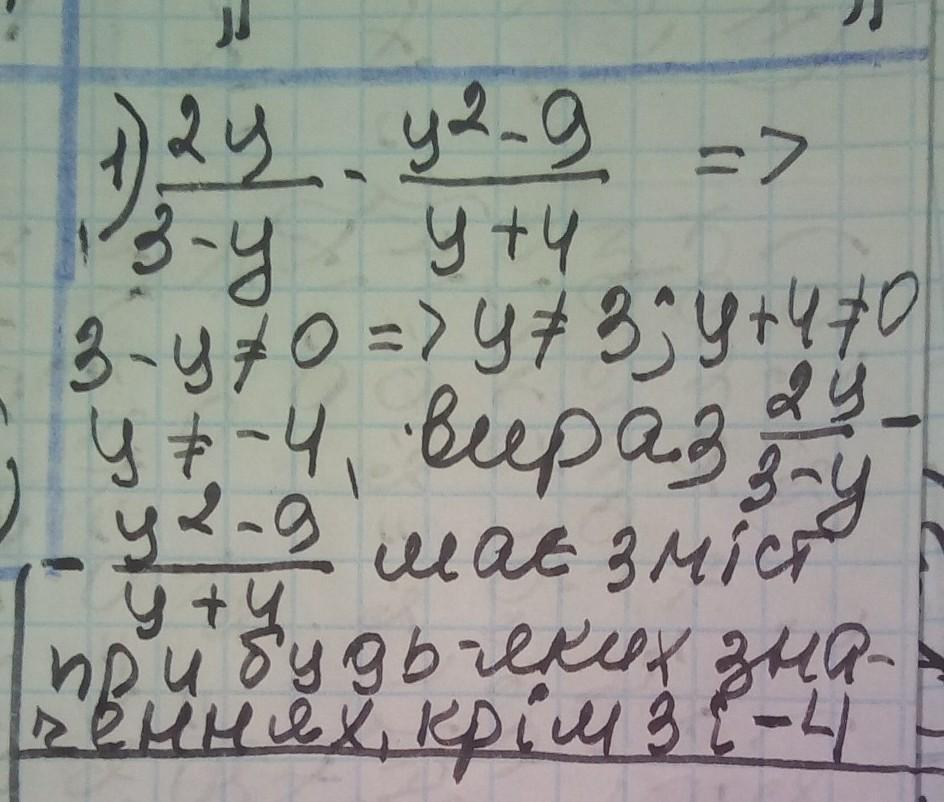 1) 2y/(3-y) - (y²-9)/(y+4) =>
3-y≠0 => y≠3; y+4≠0
y≠-4, вираз 2y/(3-y) -
- (y²-9)/(y+4) має зміст
при будь-яких зна-
ченнях, крім 3 і -4